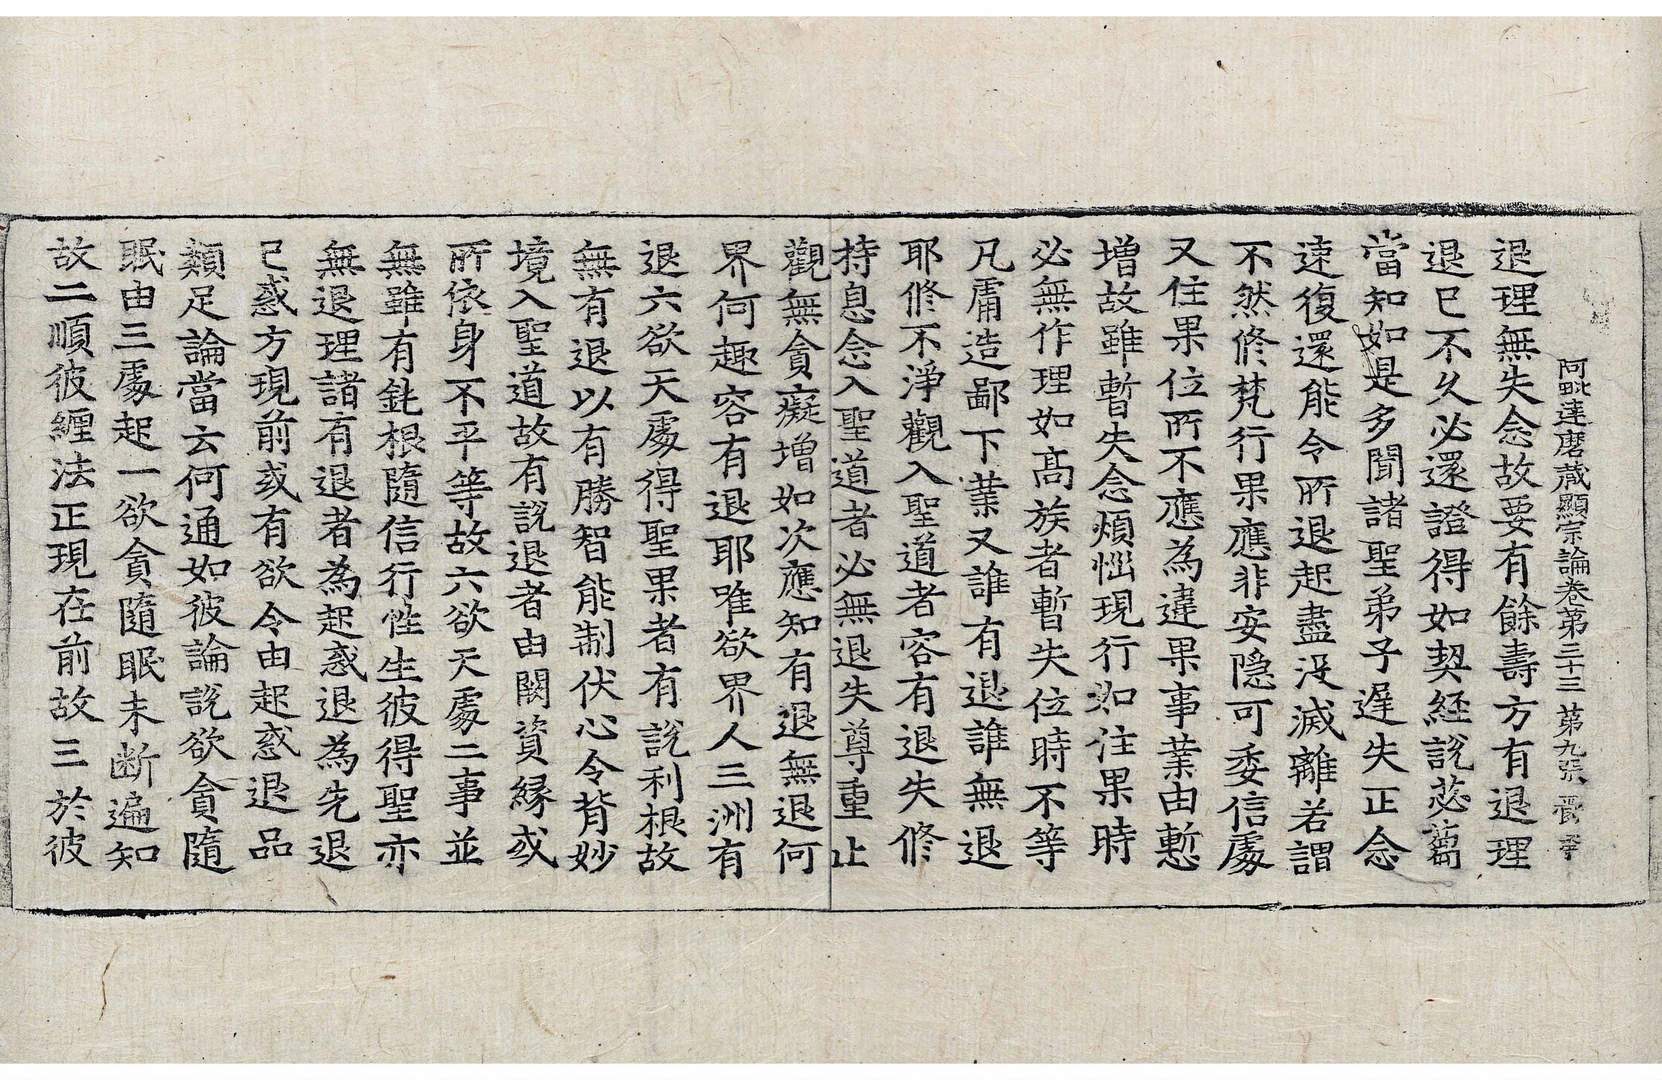 阿毗達磨藏顯宗論卷第三十三 第九張
退理無失念故要有餘壽方有退理
退已不久必還證得如契經說苾蒭
當知如是多聞諸聖弟子遲失正念
速復還能令所退起盡没滅離若謂
不然修梵行果應非安隱可委信處
又住果位所不應為違果事業由慙
增故雖暫失念煩惱現行如注果時
必無作理如高族者暫失位時不等
凡庸造鄙下業又誰有退誰無退
耶修不淨觀入聖道者容有退失修
持息念入聖道者必無退失尊重止
觀無貪癡增如次應知有退無退何
界何趣容有退耶唯欲界人三洲有
退六欲天處得聖果者有說利根故
無有退以有勝智能制伏心令背妙
境入聖道故有說退者由闕資緣或
所依身不平等故六欲天處二事並
無雖有鈍根隨信行性生彼得聖亦
無退理諸有退者為起惑退為先退
已惑方現前或有欲令由起惑退品
類足論當云何通如彼論說欲貪隨
眠由三處起一欲貪隨眠未断遍知
故二順彼纏法正現在前故三於彼